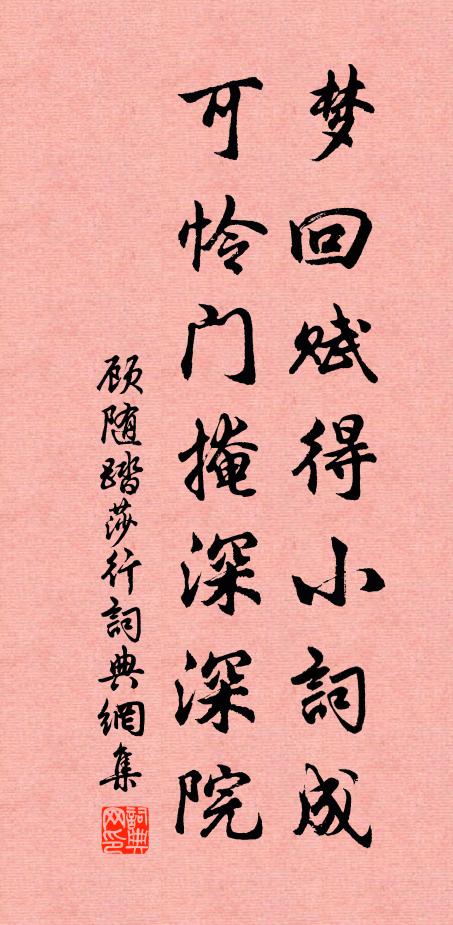 梦回赋得小詞成
可怜门掩深深院
顾随踏莎行詞典網集
詞典网印